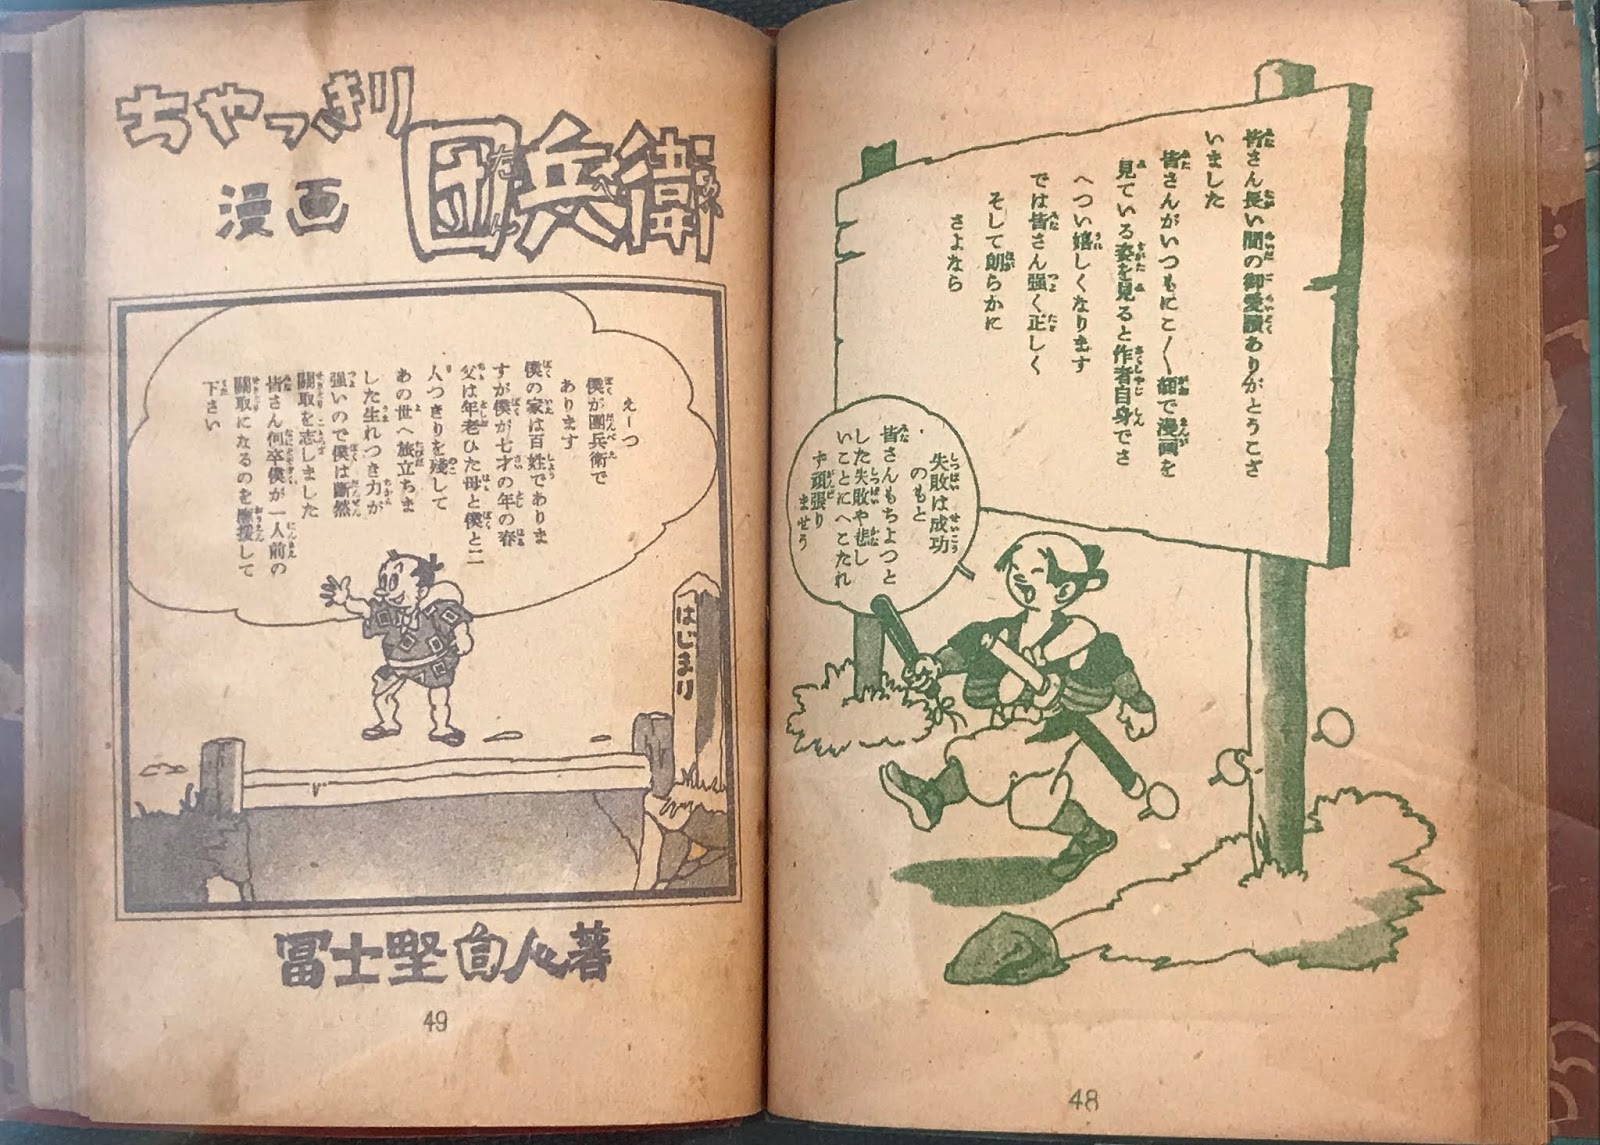 皆さん長い間の御愛讀ありがとうござ
いました
皆さんがいつもにこ〳〵顔で漫画を
見ている姿を見ると作者自身でさ
へつい嬉しくなります
では皆さん強く正しく
そして朗らかに
さよなら
失敗は成功
のもと
皆さんもちよつと
した失敗や悲し
いことにへこたれ
ず頑張り
ませう
48
ちやっきり
団兵衛
漫画
えーつ
僕が團兵衛で
あります
僕の家は百姓でありま
すが僕が七才の年の春
父は年老ひた母と僕と二
人つきりを残して
あの世へ旅立ちま
した生れつき力が
強いので僕は斷然
關取を志しました
皆さん何卒僕が一人前の
關取になるのを應援して
下さい
はじまり
冨士 著
49